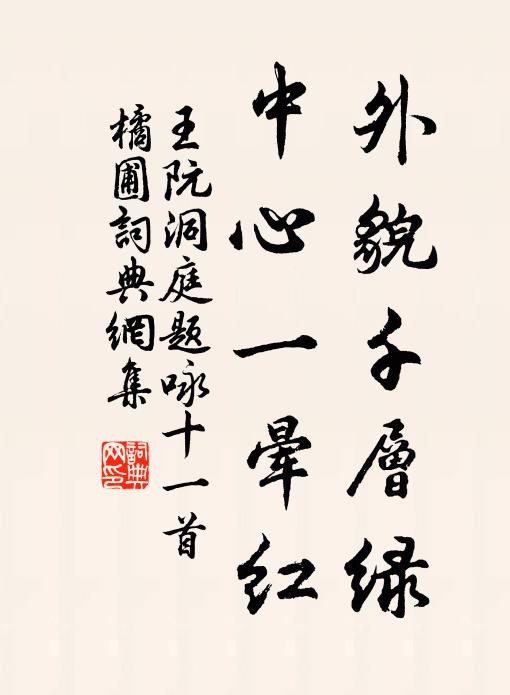 外貌千層綠
中心一暈紅
王阮洞庭題咏十一首
橘圃詞典網集
詞典網印